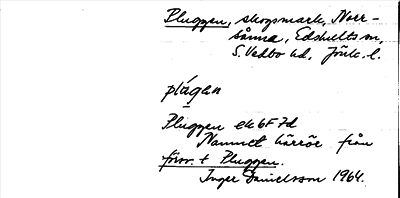 Pluggen, skogsmark, Norr-
sånna, Edshults sn,
S. Vedbo hd, Jönk. l.
plágen
Pluggen ek 6F 7d
Namnet härrör från
förv. t Pluggen.
Inger Danielsson 1964.